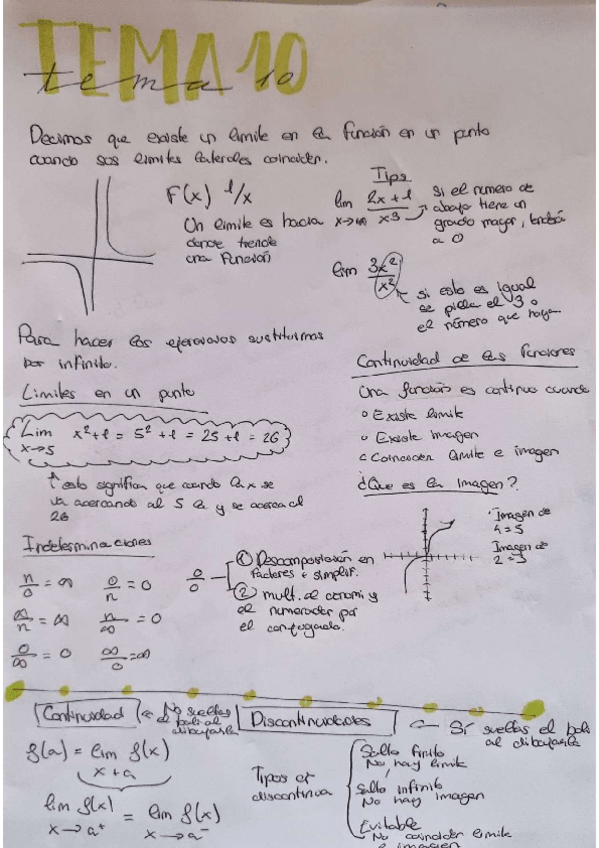 TEMA 10
tema 10
Decimos que existe un limite en la función en un punto
cuando sus limites laterales coinciden.
F(x) 1/x
Un limite es hacia
donde tiende
una función
Tips
lim 2x + 1 / x3
x→∞
Si el numero de
abajo tiene un
grado mayor, tenderá
a 0
lim 3x² / x²
si esto es igual
se pilla el 3 o
el número que haya
Para hacer los ejercicios sustituimos
por infinito.
Limites en un punto
Lim x²+1 = 5²+1 = 25+1 = 26
x→5
esto significa que cuando la x se
va acercando al 5 la y se acerca al
26
Continuidad de las funciones
Una función es continua cuando
Existe limite
Existe imagen
Coinciden limite e imagen
¿Que es la Imagen?
Imagen de
4 = 5
Imagen de
2 = 3
Indeterminaciones
n/0 = ∞ 0/n = 0
∞/n = ∞ n/∞ = 0
0/∞ = 0 ∞/0 = ∞
0/0
① Descomposición en
factores e simplif.
② mult. al denomi y
al numerador por
el conjugado.
Continuidad
No sueltas
boli al
dibujarla
Discontinuidades
Sí sueltas el boli
al dibujarla
f(a) = lim f(x)
x→a
lim f(x) = lim f(x)
x→a⁺ x→a⁻
Tipos de
discontinua
Salto finito
No hay limite
Salto infinito
No hay imagen
Evitable
No coinciden limite
e imagen